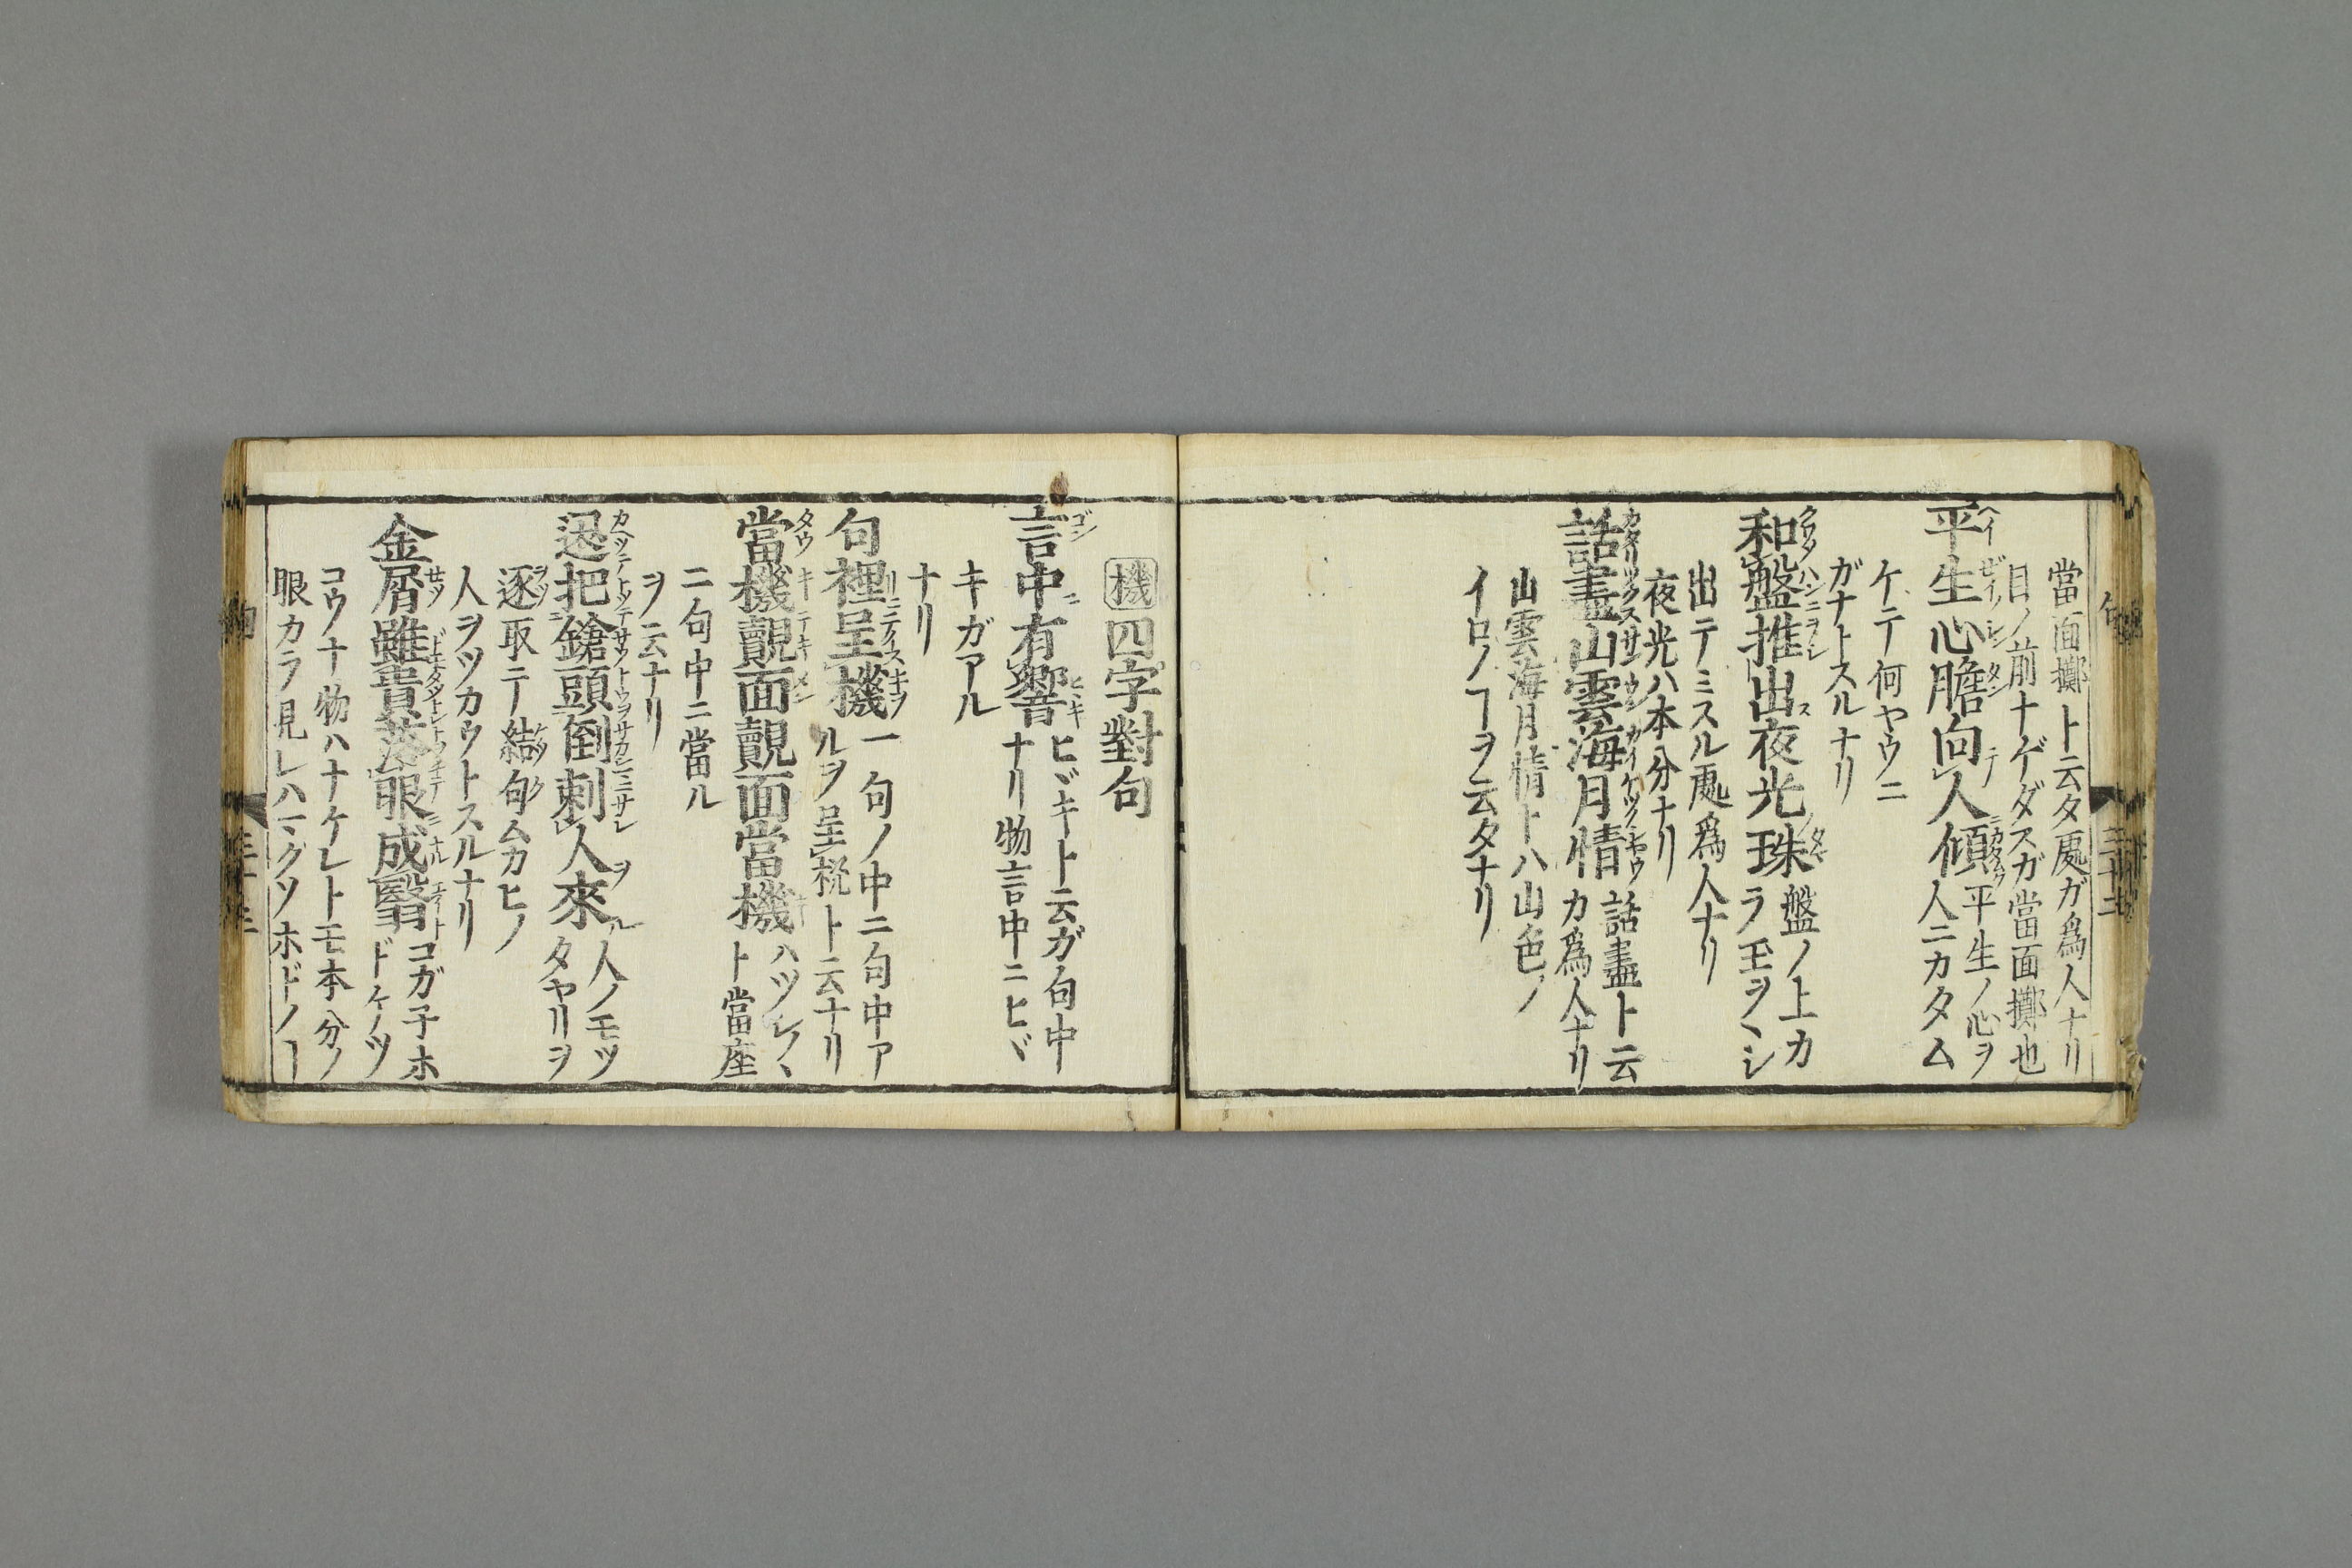 當面擲ト云タ處ガ爲人ナリ
目ノ前ナゲダスガ當面擲也
平生心膽向人傾 平生ノ心ヲ
人ニカタム
ケテ何ヤウニ
ガナトスルナリ
和盤推出夜光珠 盤ノ上カ
ラ玉ヲヽシ
出テミスル處爲人ナリ
夜光ハ本分ナリ
話盡山雲海月情 話盡ト云
カ爲人ナリ
山雲海月情トハ山色ノ
イロノヿヲ云タナリ
機四字對句
言中有響 ヒヾキト云ガ句中
ナリ物言中ニヒヾ
キガアル
ナリ
句裡呈機 一句ノ中ニ句中ア
ルヲ呈機ト云ナリ
當機覿面覿面當機 ハツレヽヽ
ト當座
ニ句中ニ當ル
ヲ云ナリ
把鎗頭倒刺人來 人ノモツ
タヤリヲ
逐取テ結句ムカヒノ
人ヲツカウトスルナリ
金屑雖貴落眼成翳 コガ子ホ
ドケツ
コウナ物ハナケレトモ本分ノ
眼カラ見レハミグツホドノヿ
句
三十二
三十三